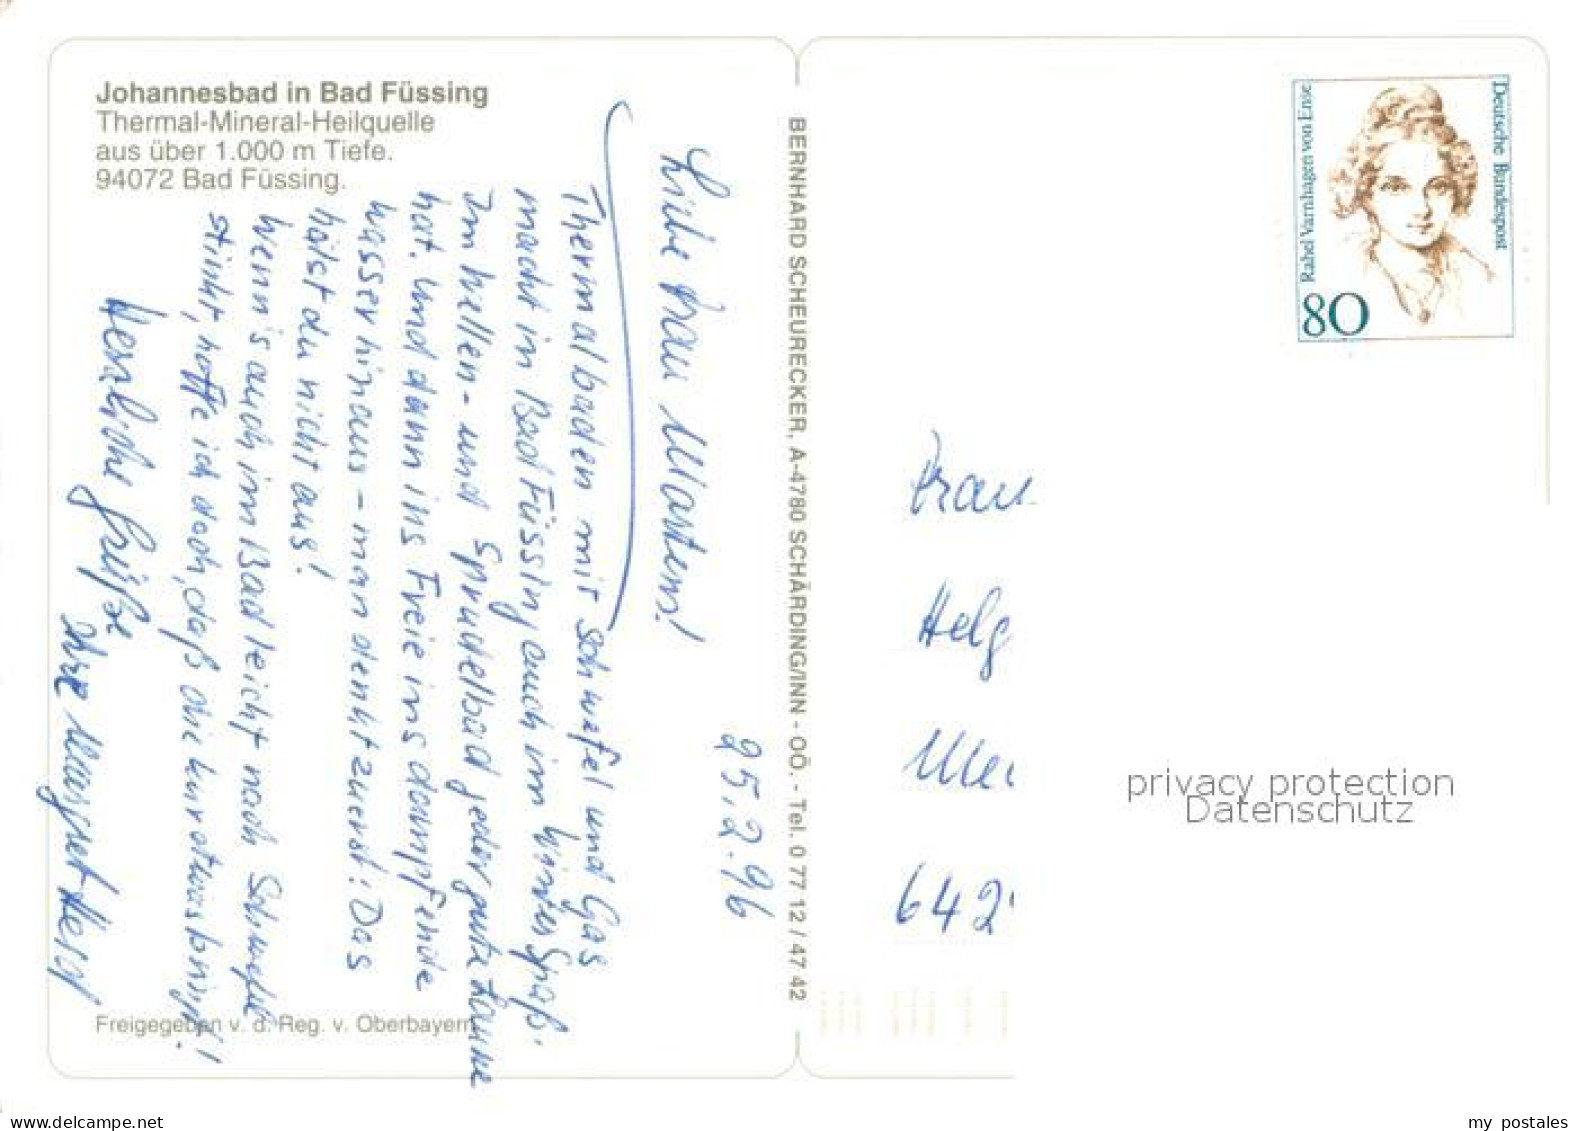 Johannesbad in Bad Füssing
Thermal-Mineral-Heilquelle
aus über 1.000 m Tiefe.
94072 Bad Füssing.
25.2.96
Liebe Frau Martens!
Thermalbaden mit Schwefel und Gas
macht in Bad Füssing auch im Winter Spaß.
Im Wellen- und Sprudelbad jeder gute Laune
hat. Und dann ins Freie ins dampfende
Wasser hinaus - man denkt zuerst: Das
hälst du nicht aus!
Wenn's auch im Bad leicht nach Schwefel
stinkt, hoffe ich doch, daß die Kur etwas bringt!
Herzliche Grüße
Ihre Margret
Freigegeben v. d. Reg. v. Oberbayern
BERNHARD SCHEURECKER, A-4780 SCHÄRDING/INN - OÖ. - Tel. 0 77 12 / 47 42
Rahel Varnhagen von Ense
Deutsche Bundespost
80
Frau
Helg
642
privacy protection
Datenschutz
www.delcampe.net
my_postales